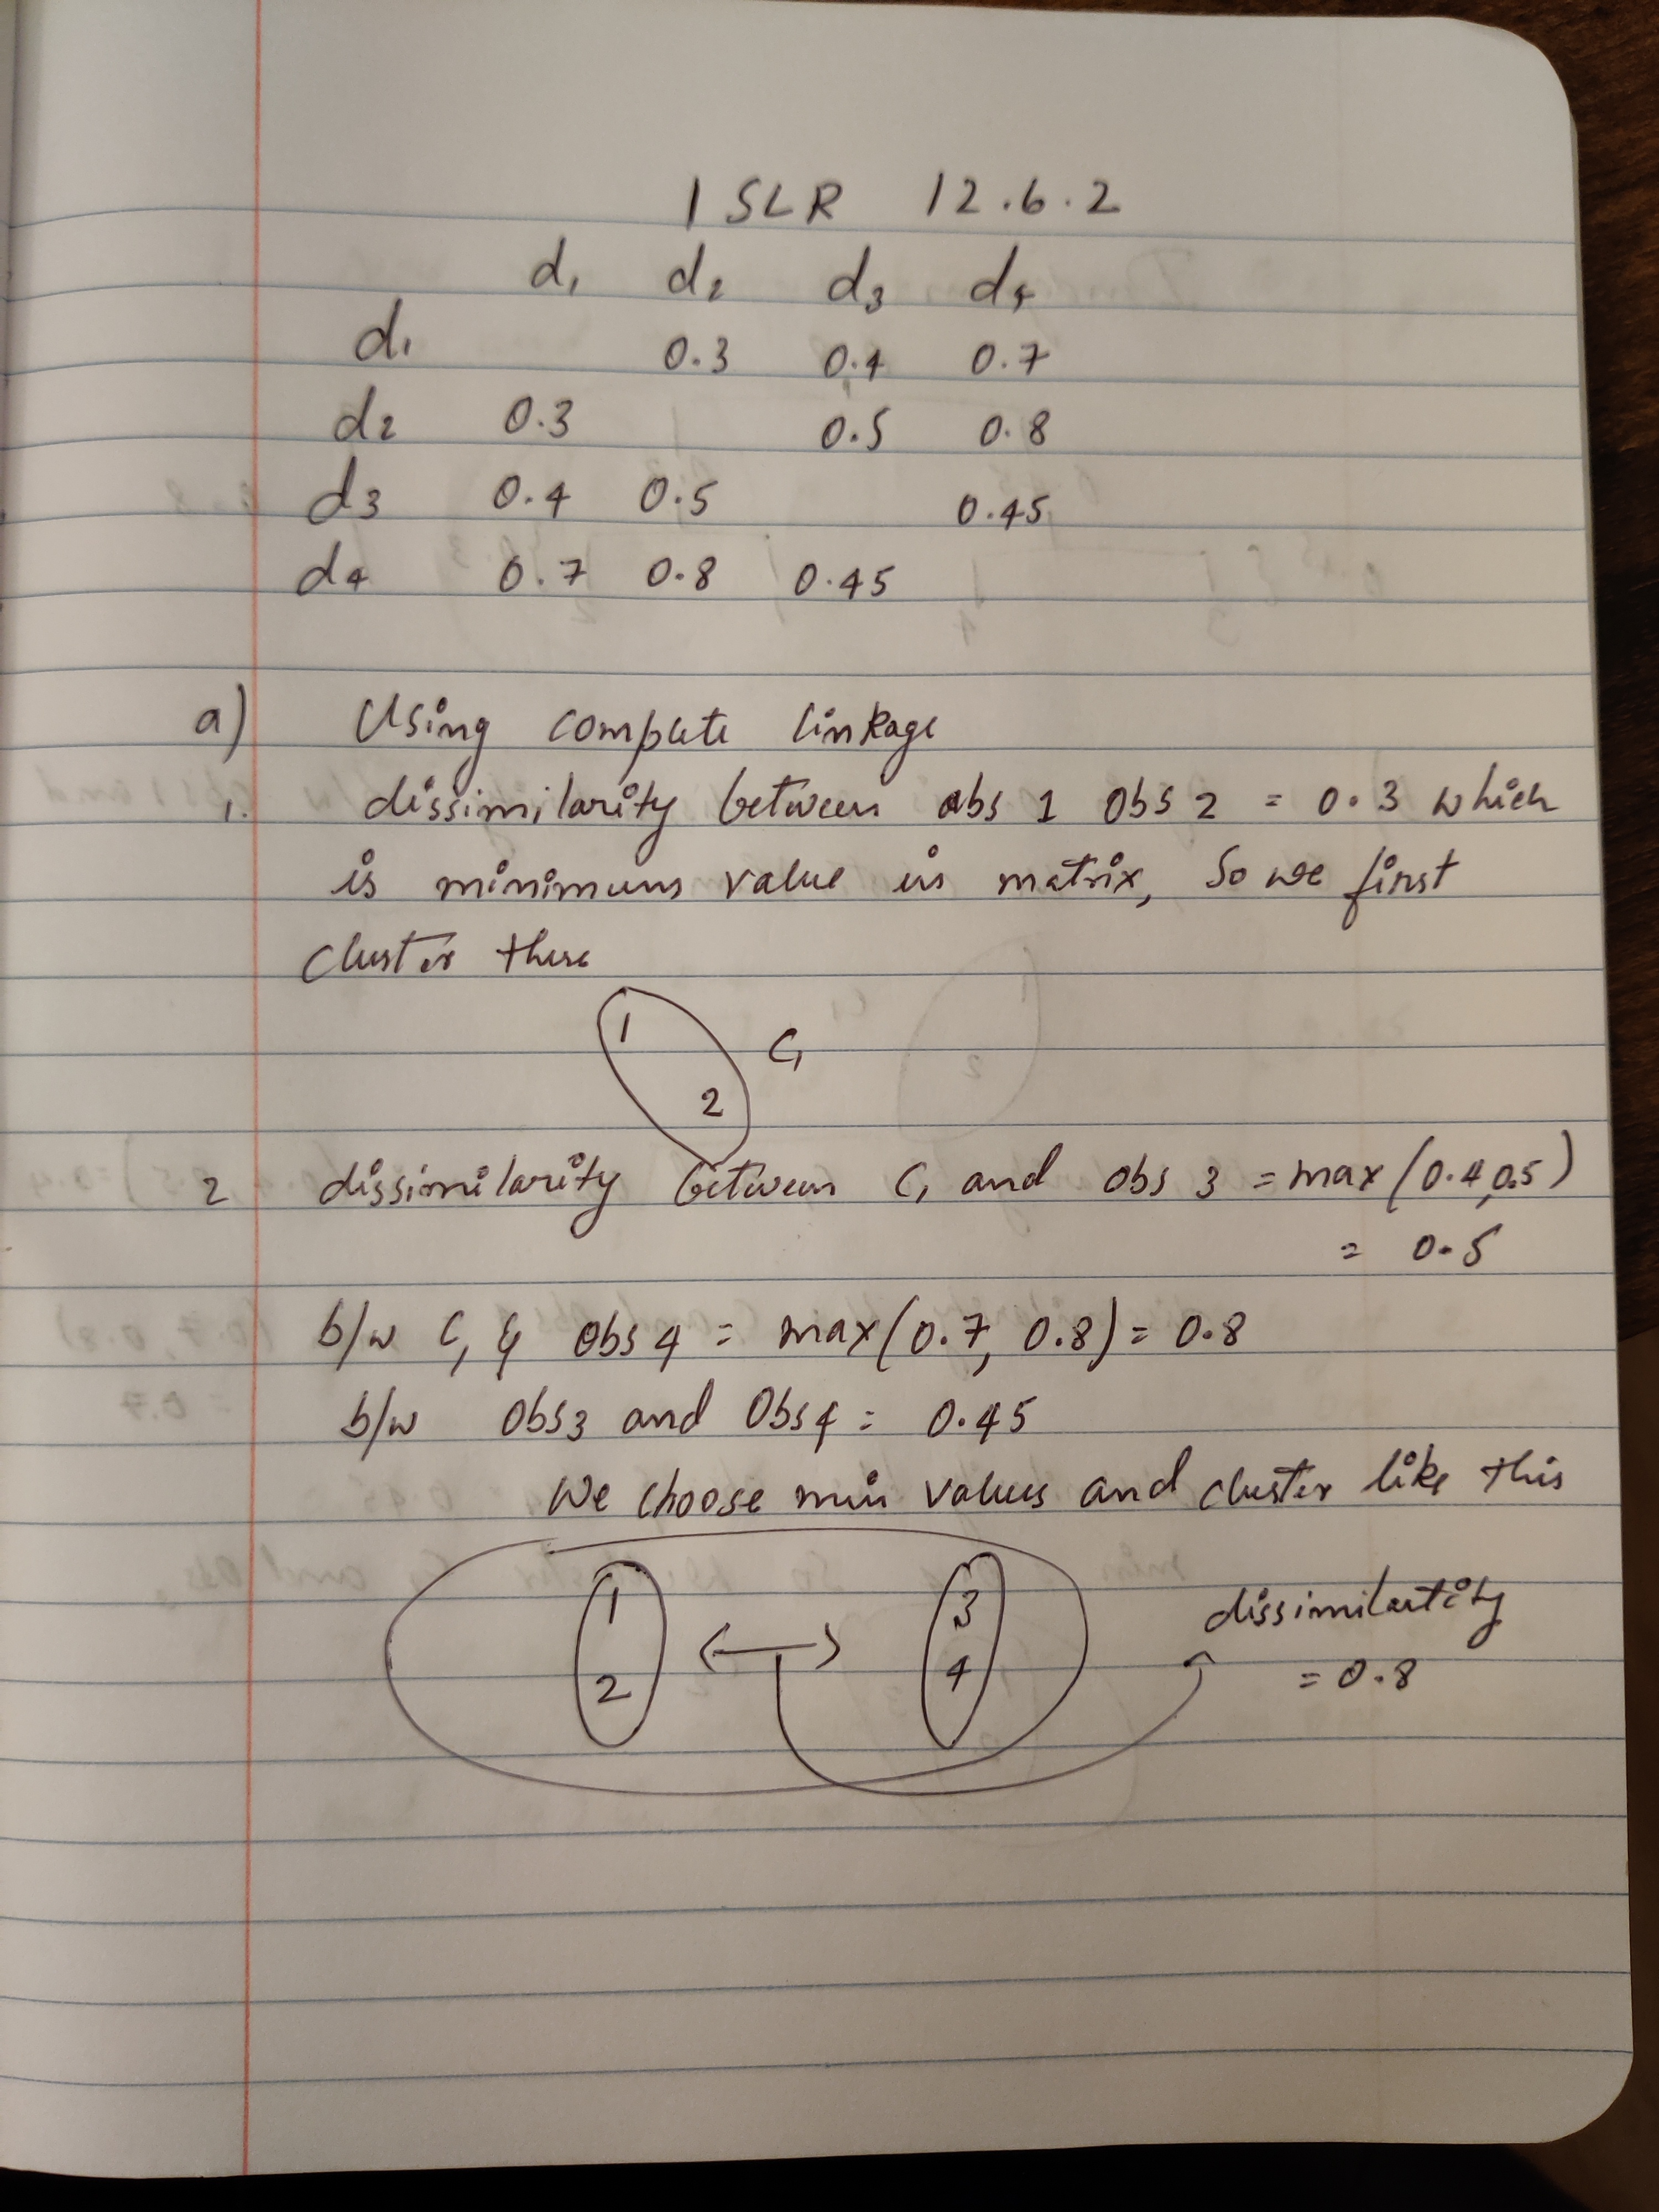 ISLR 12.6.2
d1 d2 d3 d4
d1 0.3 0.4 0.7
d2 0.3 0.5 0.8
d3 0.4 0.5 0.45
d4 0.7 0.8 0.45
a) Using complete linkage
1. dissimilarity between obs 1 obs 2 = 0.3 which
is minimum value in matrix, So we first
cluster these
1
C1
2
2 dissimilarity between C1 and obs 3 = max(0.4,0.5)
= 0.5
b/w C1 & obs 4 = max(0.7, 0.8) = 0.8
b/w obs3 and Obs4 = 0.45
We choose min values and cluster like this
1 3
2 4
dissimilartity
= 0.8